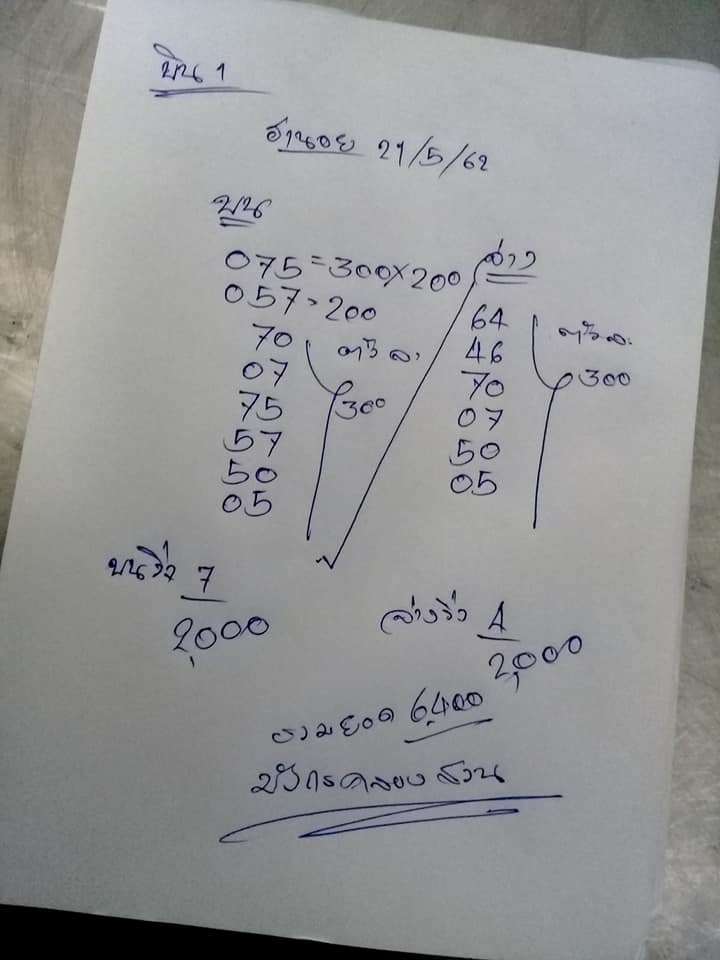 บิน 1
ฮานอย 21/5/62
บน
075 = 300 x 200
057 = 200
70
07
75
57
50
05
ตัวละ
300
ล่าง
64
46
70
07
50
05
ตัวละ
300
บนวิ่ง 7
2,000
ล่างวิ่ง 4
2,000
รวมยอด 6,400
มังกรคลองสวน